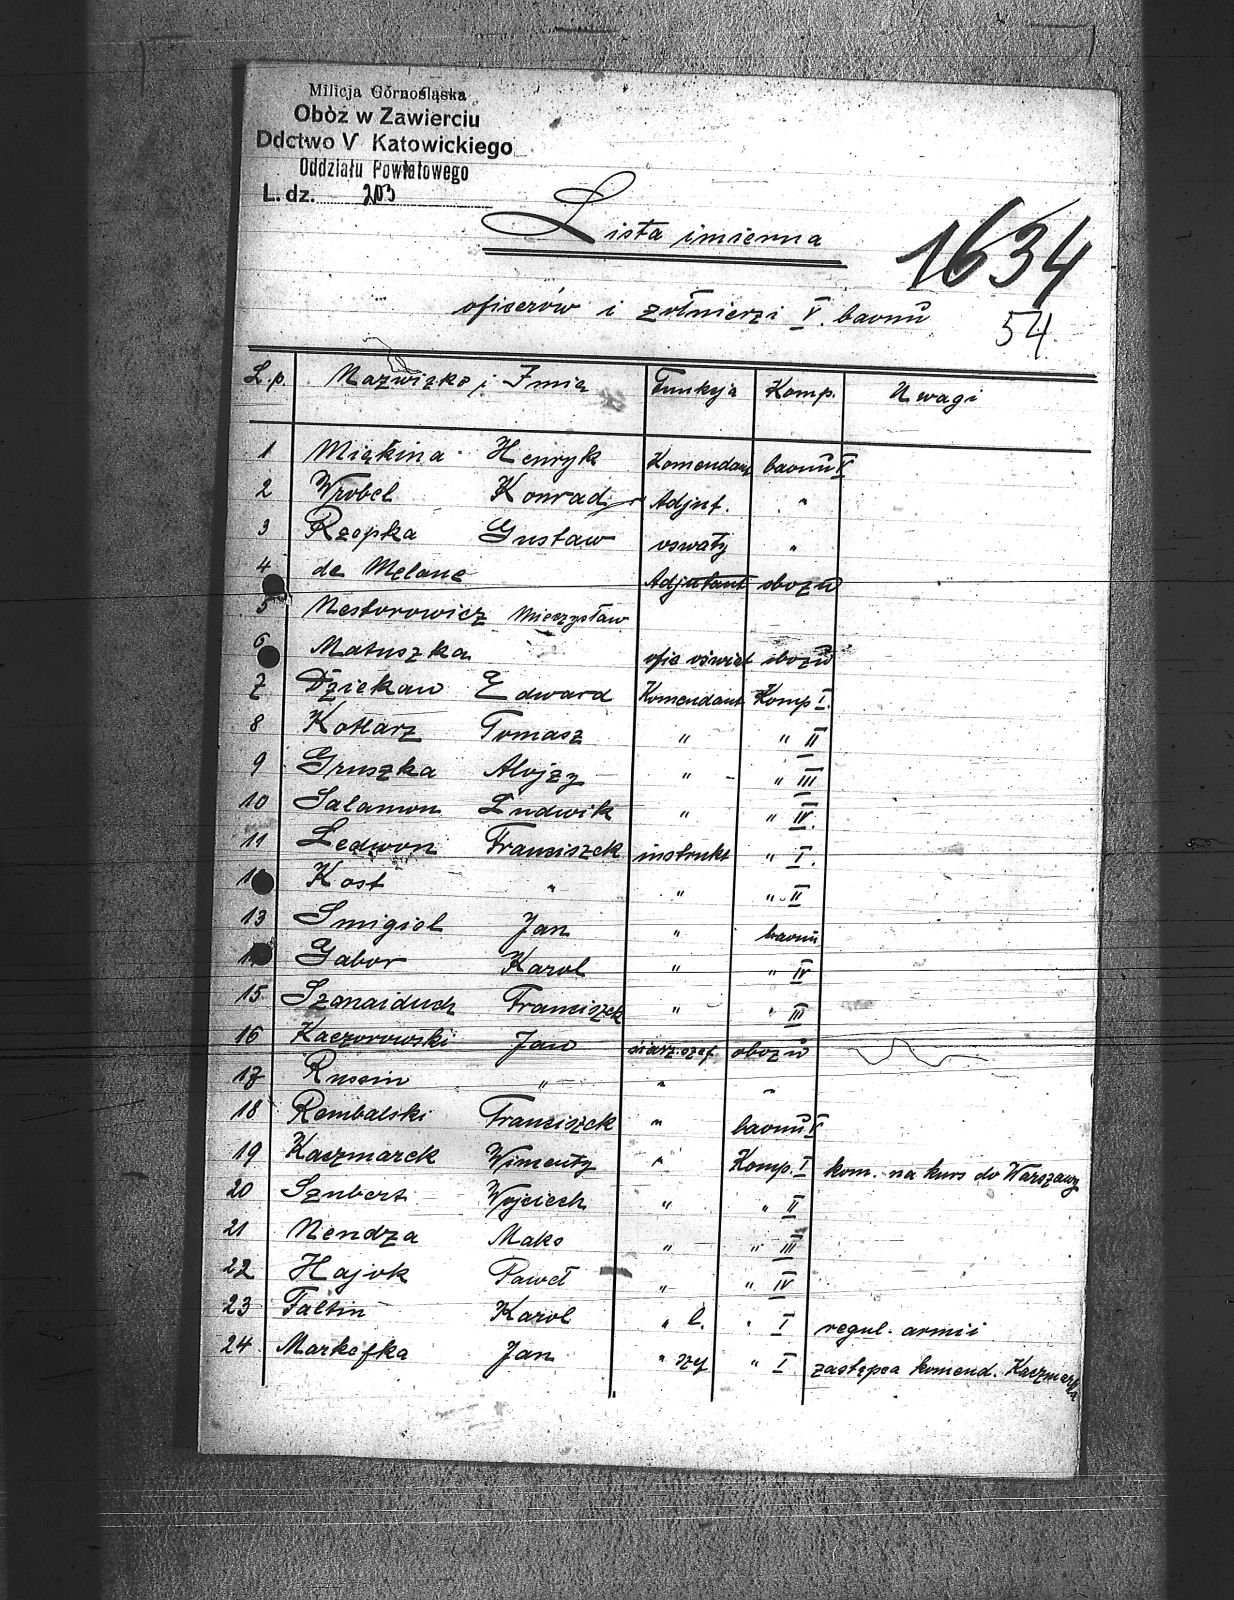 Milicja Górnośląska
Obóz w Zawierciu
Ddctwo V Katowickiego
Oddziału Powiatowego
L. dz. 203
Lista imienna
1634
oficerów i żołnierzi V. baonu
54
L.p. Nazwisko i Imię Funkcja Komp. Uwagi
1 Miękina Henryk Komendant baonu V
2 Wrobel Konrad Adjut. "
3 Rzepka Gustaw oswiaty "
4 de Melane Adjutant obozu
5 Nestorowicz Mieczysław
6 Matuszka ofic oświat obozu
7 Dziekan Edward Komendant Komp I.
8 Kotlarz Tomasz " " II
9 Gruszka Alojzy " " III
10 Salamon Ludwik " " IV.
11 Ledwon Franciszek instrukt " I.
Kost " " " II
13 Smigiel Jan " baonu
Gabor Karol " " IV
15 Szmaiduch Franciszek " " III
16 Kaczorowski Jan sierz. szef obozu
17 Rusein " " "
18 Rembalski Franciszek " baonu V
19 Kaczmarek Wincenty " Komp. I kom. na kurs do Warszawy
20 Sznbert Wojciech " " II
21 Nendza Maks " " III
22 Hajok Paweł " " IV
23 Faltin Karol " l. " I regul. armii
24 Markefka Jan " " I. zastępca komend. Kaczmarka